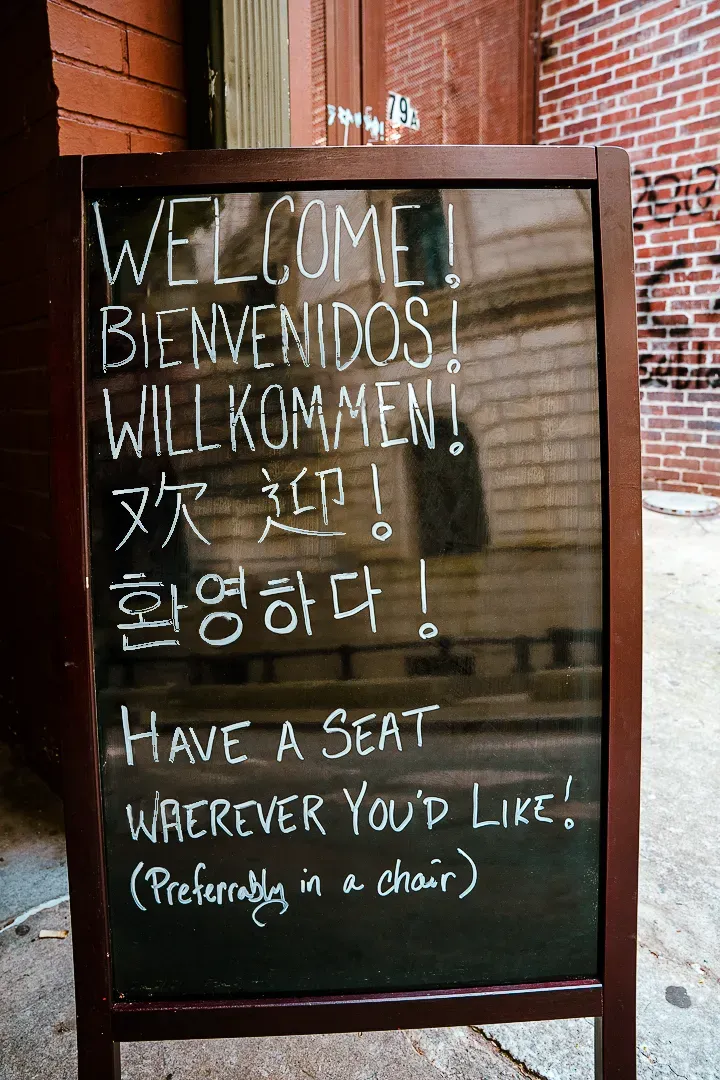 79A
WELCOME!
BIENVENIDOS!
WILLKOMMEN!
欢 迎!
환영하다!
HAVE A SEAT
WHEREVER YOU'D LIKE!
(Preferrably in a chair)